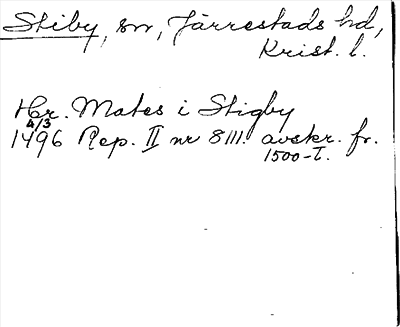 Stiby, sn, Järrestads hd,
Krist. l.
Hr. Mates i Stigby
4/3
1496 Rep. II nr 8111. avskr. fr.
1500-T.